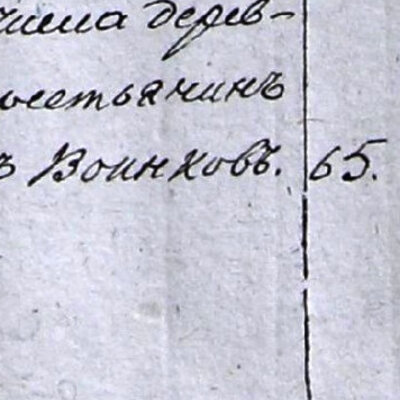 чина дерев-
рестьянинъ
ъ Воинковъ. 65.